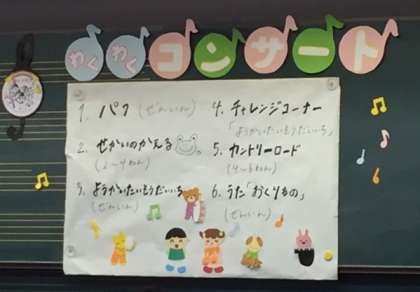 わくわくコンサート
1. パフ (ぜんいん)
2. せかいのかえる
(2~4わん)
3. ようかいたいそうだいいち
(ぜんいん)
4. チャレンジコーナー
「ようかいたいそうだいいち」
5. カントリーロード
(4~6わん)
6. うた「おくりもの」
(ぜんいん)